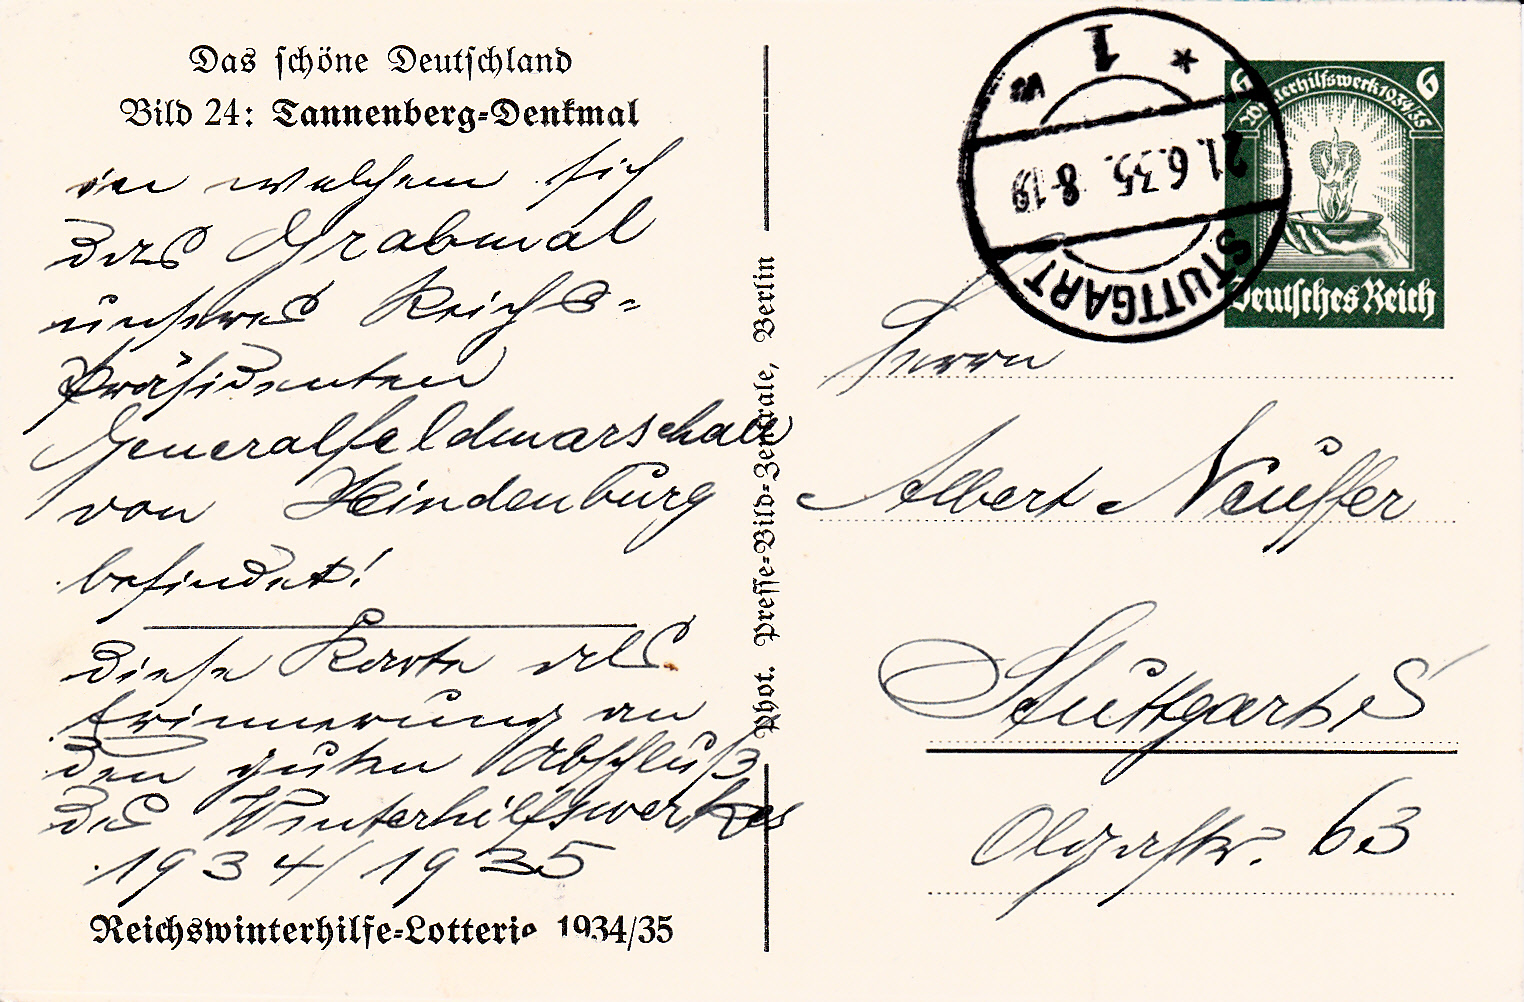 Das schöne Deutschland
Bild 24: Tannenberg-Denkmal
in welchem sich
das Grabmal
unseres Reichs-
präsidenten
Generalfeldmarschall
von Hindenburg
befindet!
Diese Karte als
Erinnerung an
den guten Abschluß
des Winterhilfswerkes
1934/1935
Reichswinterhilfe-Lotterie 1934/35
Phot. Presse-Bild-Zentrale, Berlin
STUTTGART
21.6.35. 8-19
* 1
6 6
Winterhilfswerk 1934/35
Deutsches Reich
Herrn
Albert Neuffer
Stuttgart S
Olgastr. 63